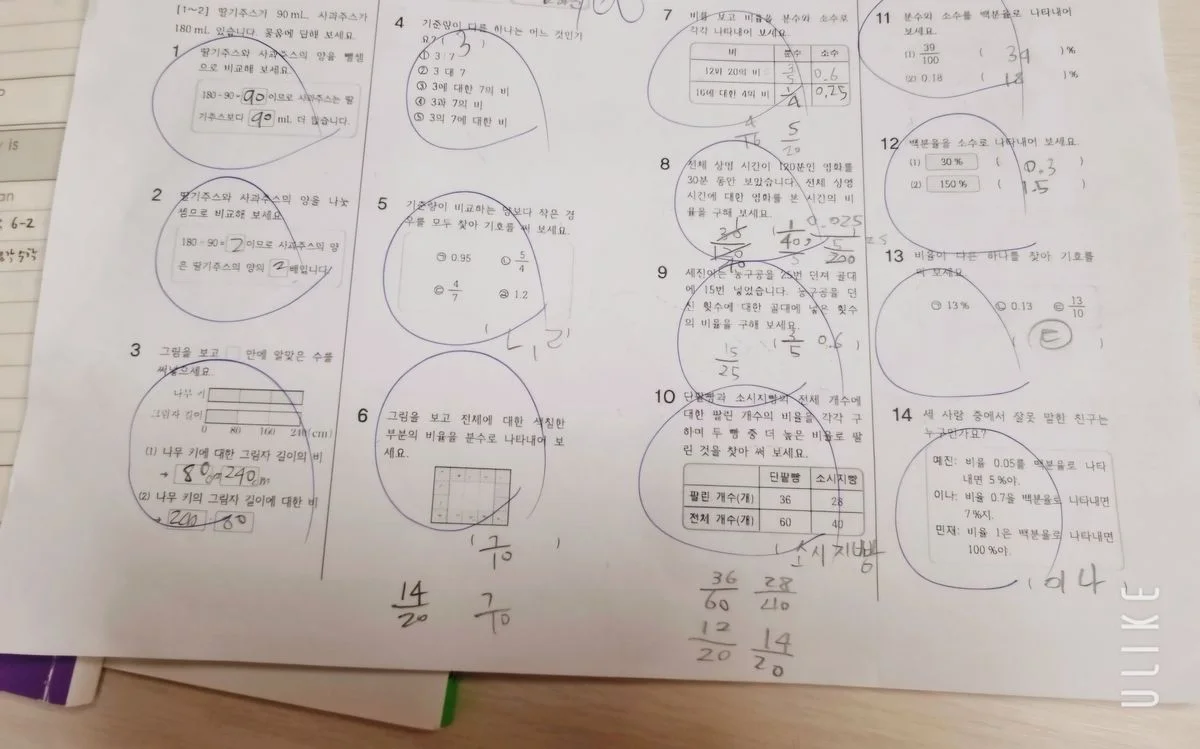 [1~2] 딸기주스가 90 mL, 사과주스가
180 mL 있습니다. 물음에 답해 보세요.
1 딸기주스와 사과주스의 양을 뺄셈
으로 비교해 보세요.
180-90=90이므로 사과주스는 딸
기주스보다 90 mL 더 많습니다.
2 딸기주스와 사과주스의 양을 나눗
셈으로 비교해 보세요.
180÷90=2이므로 사과주스의 양
은 딸기주스의 양의 2배입니다.
3 그림을 보고 □ 안에 알맞은 수를
써넣으세요.
나무 키
그림자 길이
0 80 160 240(cm)
(1) 나무 키에 대한 그림자 길이의 비
→ 80 240cm
(2) 나무 키의 그림자 길이에 대한 비
→ 240 : 80
4 기준량이 다른 하나는 어느 것인가
요? ( 3 )
① 3 : 7
② 3 대 7
③ 3에 대한 7의 비
④ 3과 7의 비
⑤ 3의 7에 대한 비
5 기준량이 비교하는 양보다 작은 경
우를 모두 찾아 기호를 써 보세요.
㉠ 0.95 ㉡ 5/4
㉢ 4/7 ㉣ 1.2
( ㄴ, ㄹ
6 그림을 보고 전체에 대한 색칠한
부분의 비율을 분수로 나타내어 보
세요.
( 7/10 )
14/20 7/10
7 비를 보고 비율을 분수와 소수로
각각 나타내어 보세요.
비 분수 소수
12와 20의 비 3/5 0.6
16에 대한 4의 비 1/4 0.25
4/16 5/20
8 전체 상영 시간이 120분인 영화를
30분 동안 보았습니다. 전체 상영
시간에 대한 영화를 본 시간의 비
율을 구해 보세요.
( 1/40, 0.025
5/200
9 세진이는 농구공을 25번 던져 골대
에 15번 넣었습니다. 농구공을 던
진 횟수에 대한 골대에 넣은 횟수
의 비율을 구해 보세요.
( 3/5 0.6 )
15/25
10 단팥빵과 소시지빵의 전체 개수에
대한 팔린 개수의 비율을 각각 구
하여 두 빵 중 더 높은 비율로 팔
린 것을 찾아 써 보세요.
단팥빵 소시지빵
팔린 개수(개) 36 28
전체 개수(개) 60 40
( 소시지빵
36/60 28/40
12/20 14/20
11 분수와 소수를 백분율로 나타내어
보세요.
(1) 39/100 ( 39 )%
(2) 0.18 ( 18 )%
12 백분율을 소수로 나타내어 보세요.
(1) 30 % ( 0.3 )
(2) 150 % ( 1.5 )
13 비율이 다른 하나를 찾아 기호를
써 보세요.
㉠ 13 % ㉡ 0.13 ㉢ 13/10
( ㉢ )
14 세 사람 중에서 잘못 말한 친구는
누구인가요?
예진: 비율 0.05를 백분율로 나타
내면 5 %야.
이나: 비율 0.7을 백분율로 나타내면
7 %지.
민재: 비율 1은 백분율로 나타내면
100 %야.
( 이나 )
6-2
ULIKE